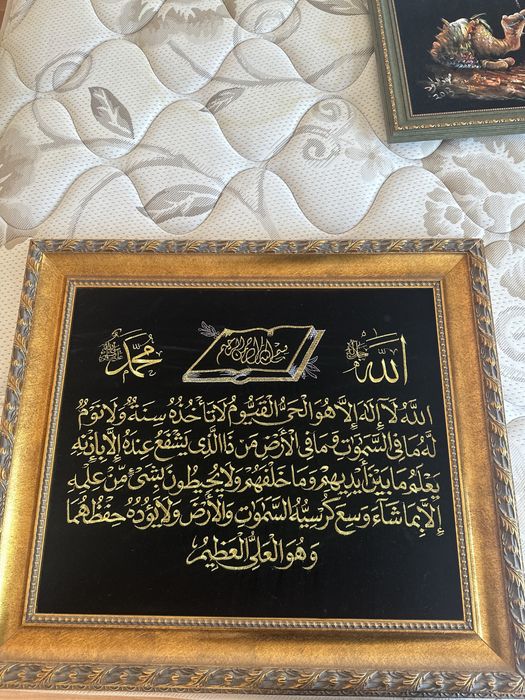 الله جل جلاله
بسم الله الرحمن الرحيم
محمد
اللهُ لَا إِلَهَ إِلَّا هُوَ الْحَيُّ الْقَيُّومُ لَا تَأْخُذُهُ سِنَةٌ وَلَا نَوْمٌ
لَهُ مَا فِي السَّمَوَاتِ وَمَا فِي الْأَرْضِ مَنْ ذَا الَّذِي يَشْفَعُ عِنْدَهُ إِلَّا بِإِذْنِهِ
يَعْلَمُ مَا بَيْنَ أَيْدِيهِمْ وَمَا خَلْفَهُمْ وَلَا يُحِيطُونَ بِشَيْءٍ مِنْ عِلْمِهِ
إِلَّا بِمَا شَاءَ وَسِعَ كُرْسِيُّهُ السَّمَوَاتِ وَالْأَرْضَ وَلَا يَؤُدُهُ حِفْظُهُمَا
وَهُوَ الْعَلِيُّ الْعَظِيمُ